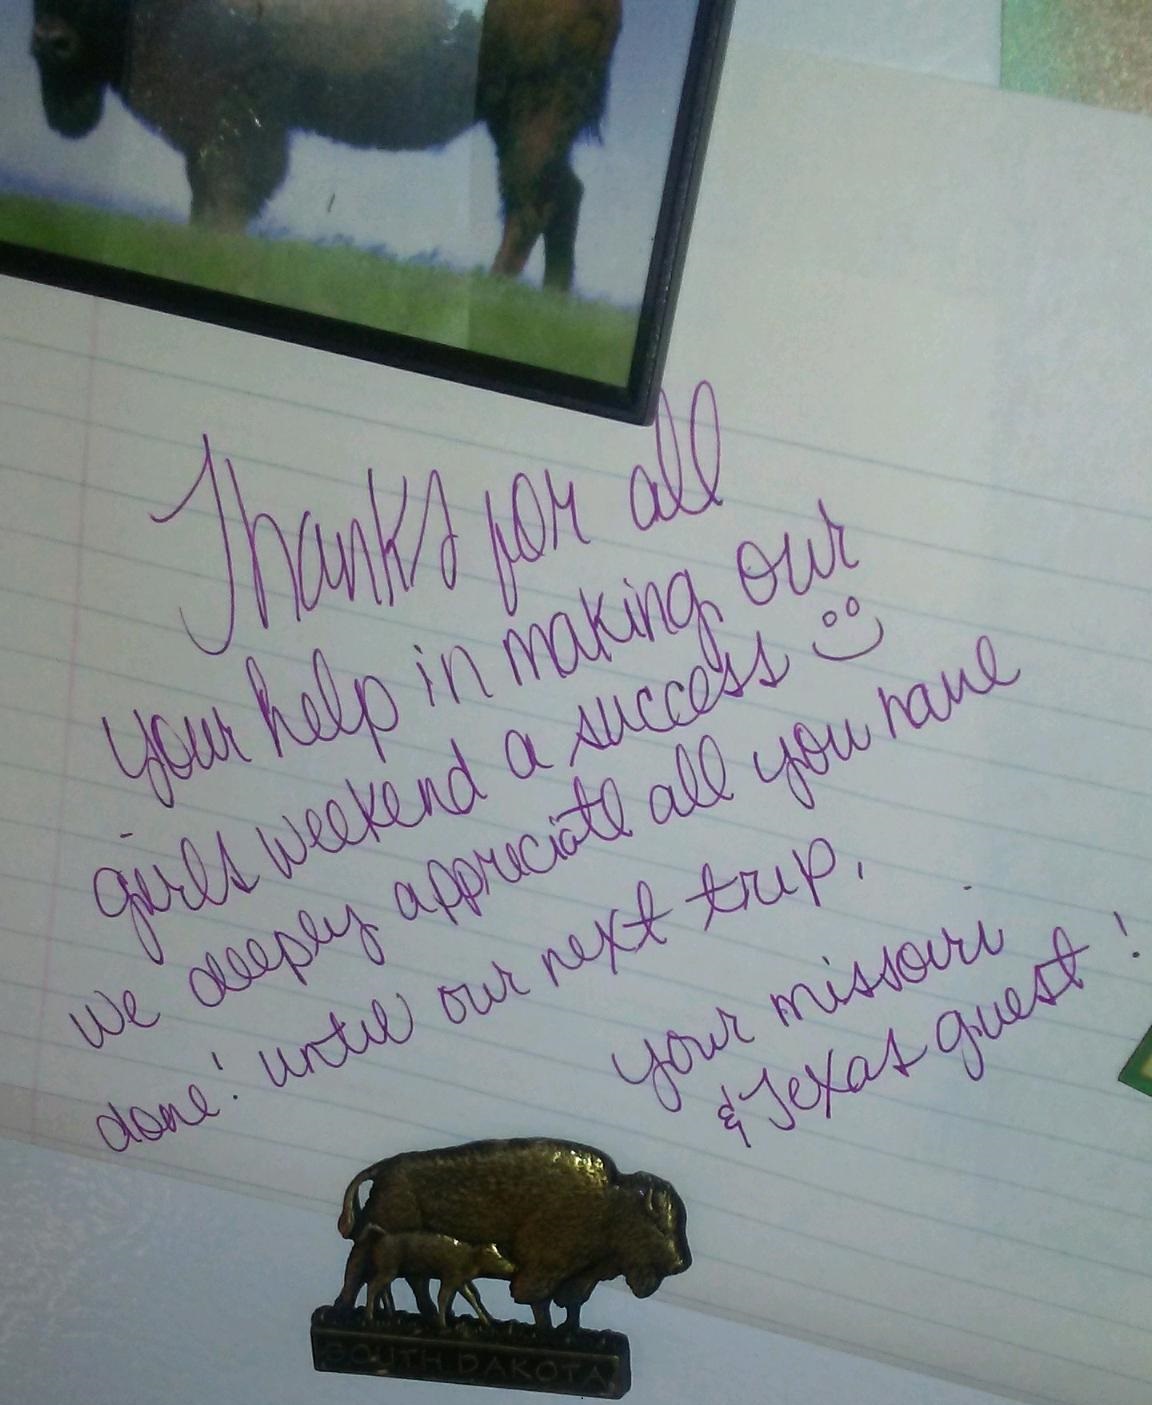 Thanks for all
your help in making our
girls weekend a success
we deeply appreciate all you have
done! until our next trip.
your missouri
& Texas guest!
SOUTH DAKOTA